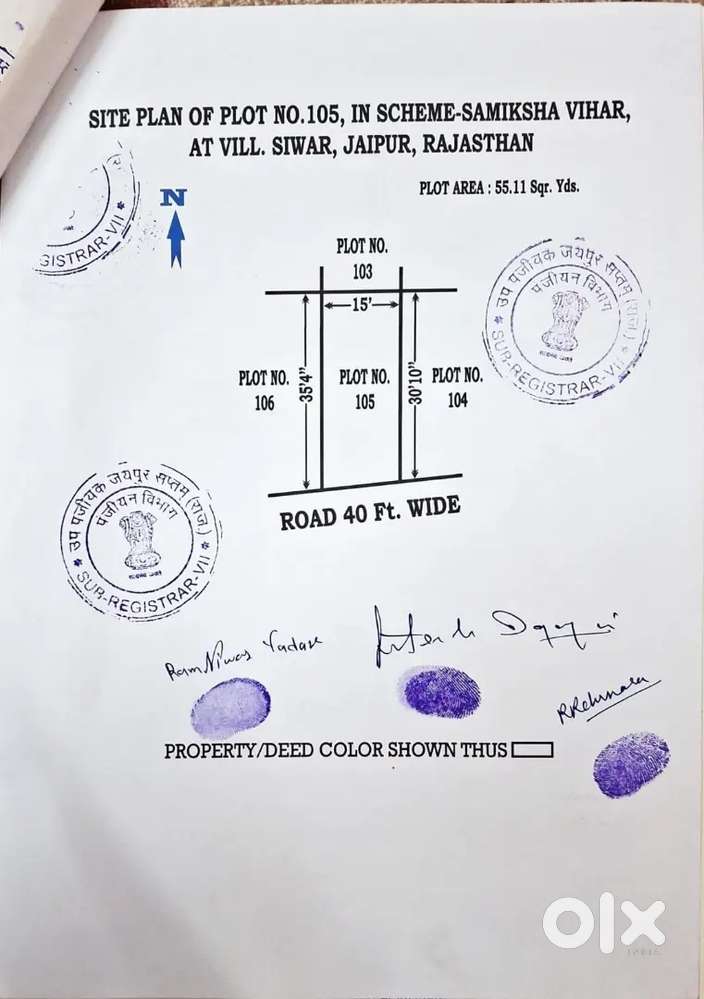 SITE PLAN OF PLOT NO.105, IN SCHEME-SAMIKSHA VIHAR,
AT VILL. SIWAR, JAIPUR, RAJASTHAN
PLOT AREA : 55.11 Sqr. Yds.
GISTRAR-VII *
N
PLOT NO.
103
15'
उप पंजीयक जयपुर सप्तम (राज.)
पंजीयन विभाग
* SUB-REGISTRAR-VII *
PLOT NO.
106
35'4"
PLOT NO.
105
30'10"
PLOT NO.
104
ROAD 40 Ft. WIDE
उप पंजीयक जयपुर सप्तम (राज.)
पंजीयन विभाग
* SUB-REGISTRAR-VII *
Ram Niwas Yadav
PROPERTY/DEED COLOR SHOWN THUS
olx
INDIA